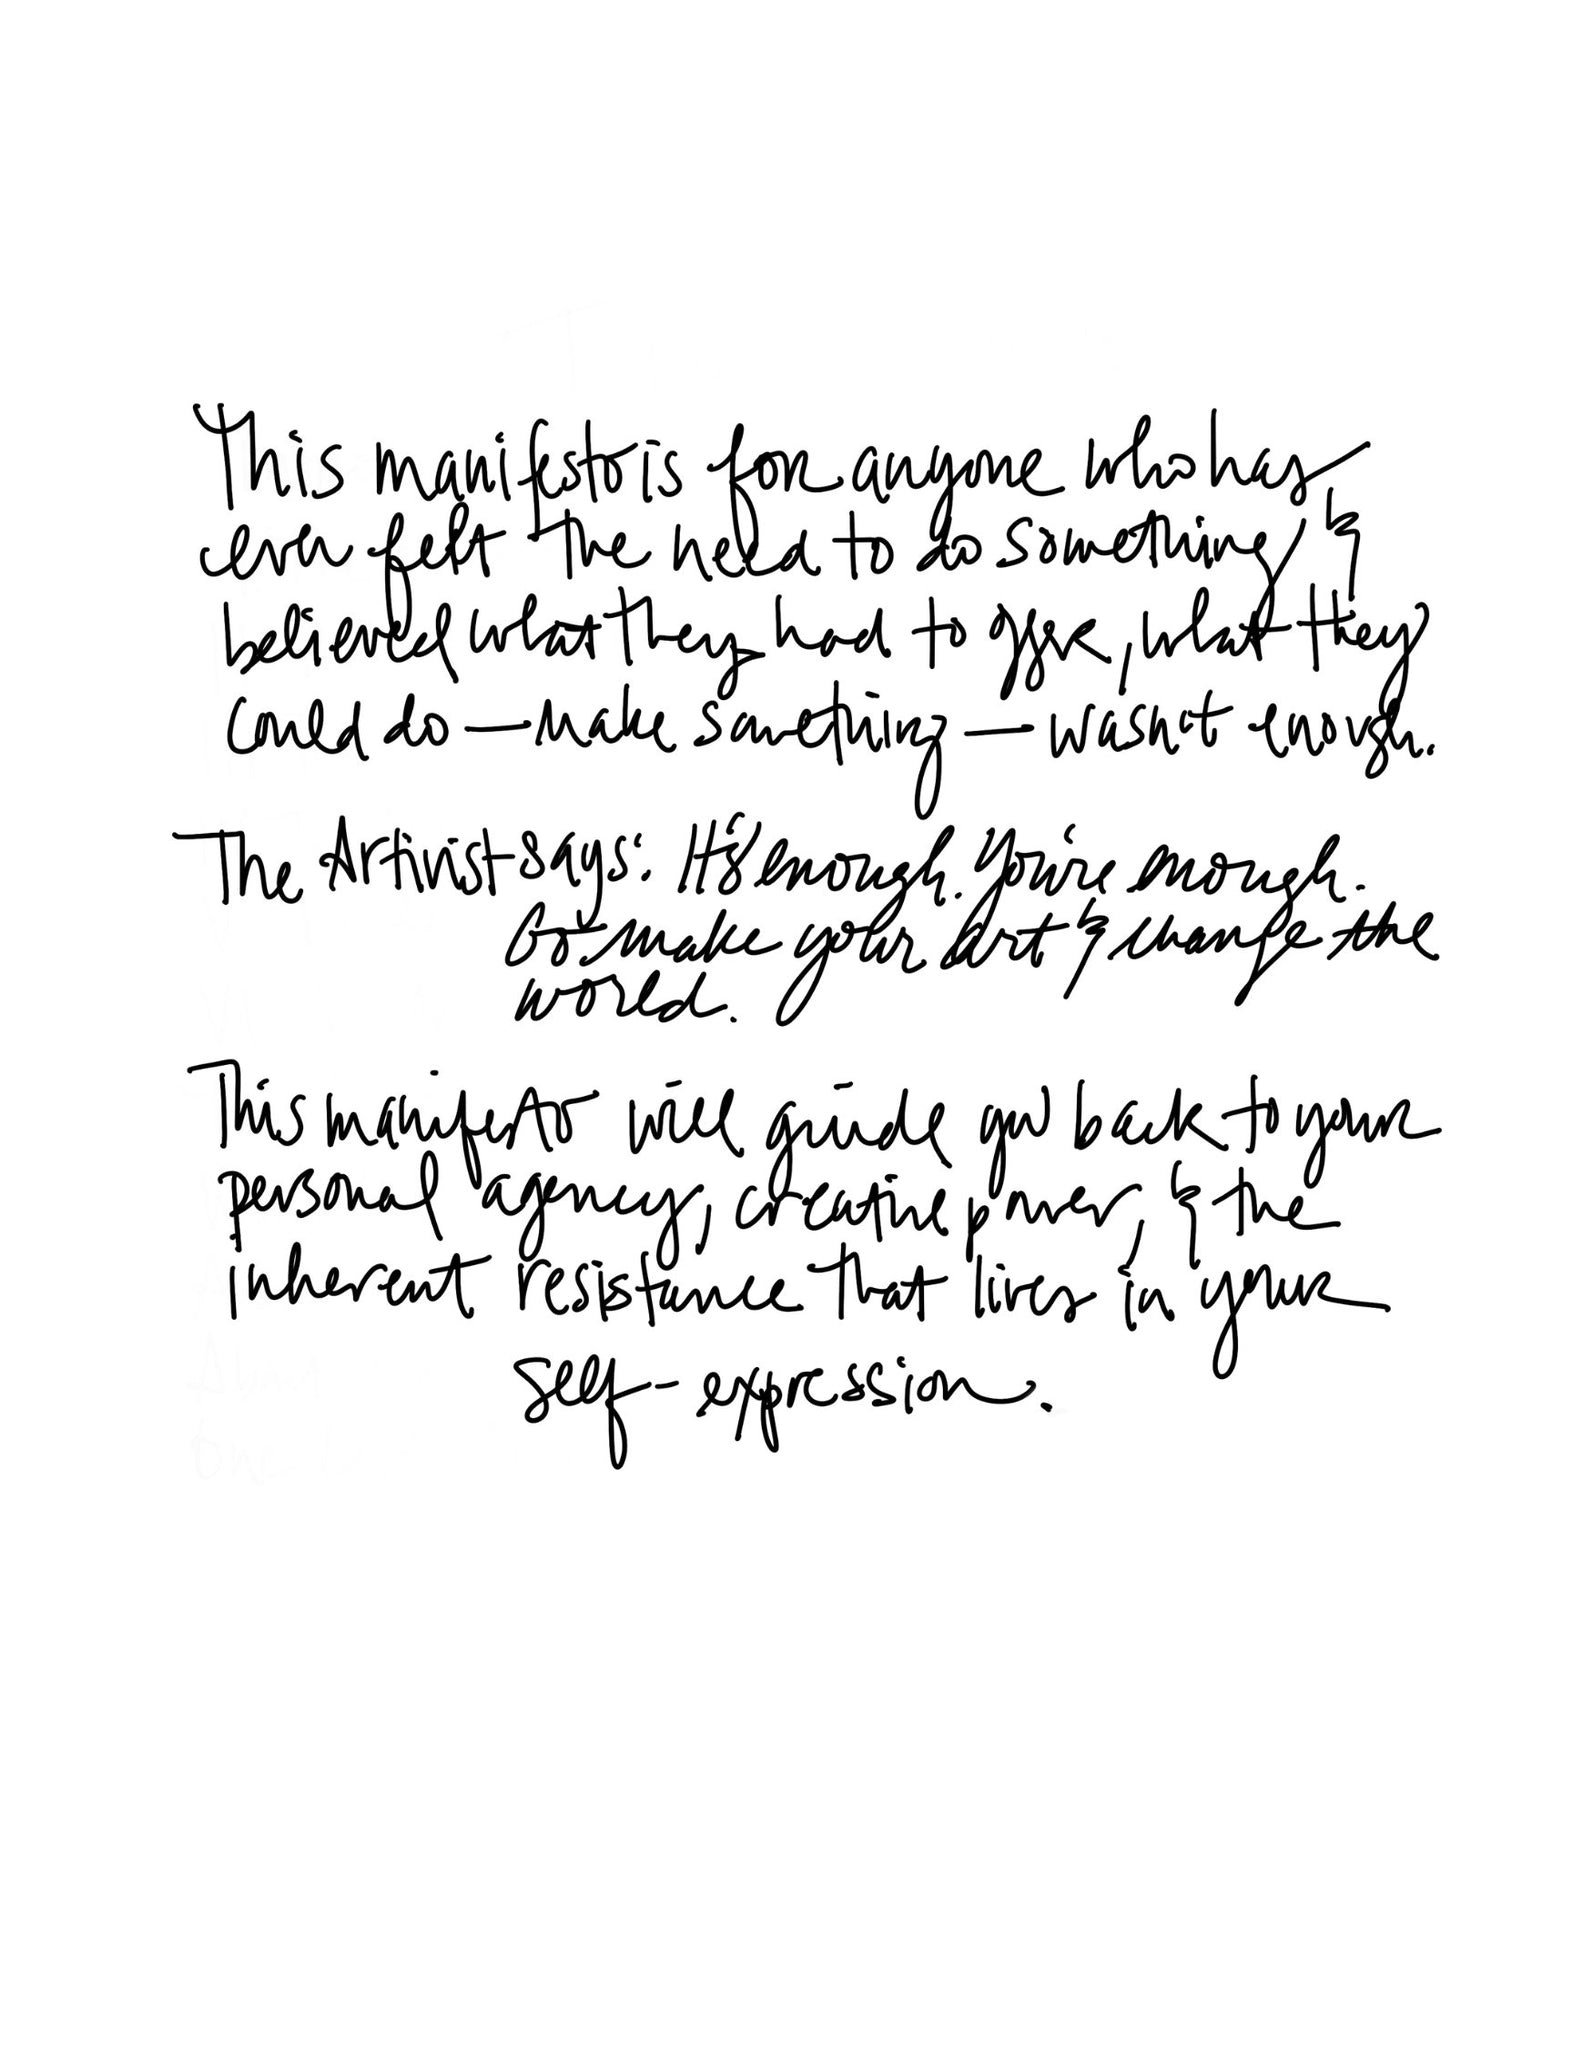 This manifesto is for anyone who has
ever felt the need to do something, &
believed what they had to offer, what they
could do — make something — wasn't enough.
The Artivist says: It's enough. You're enough.
Go make your art & change the
world.
This manifesto will guide you back to your
personal agency, creative power, & the
inherent resistance that lives in your
self-expression.